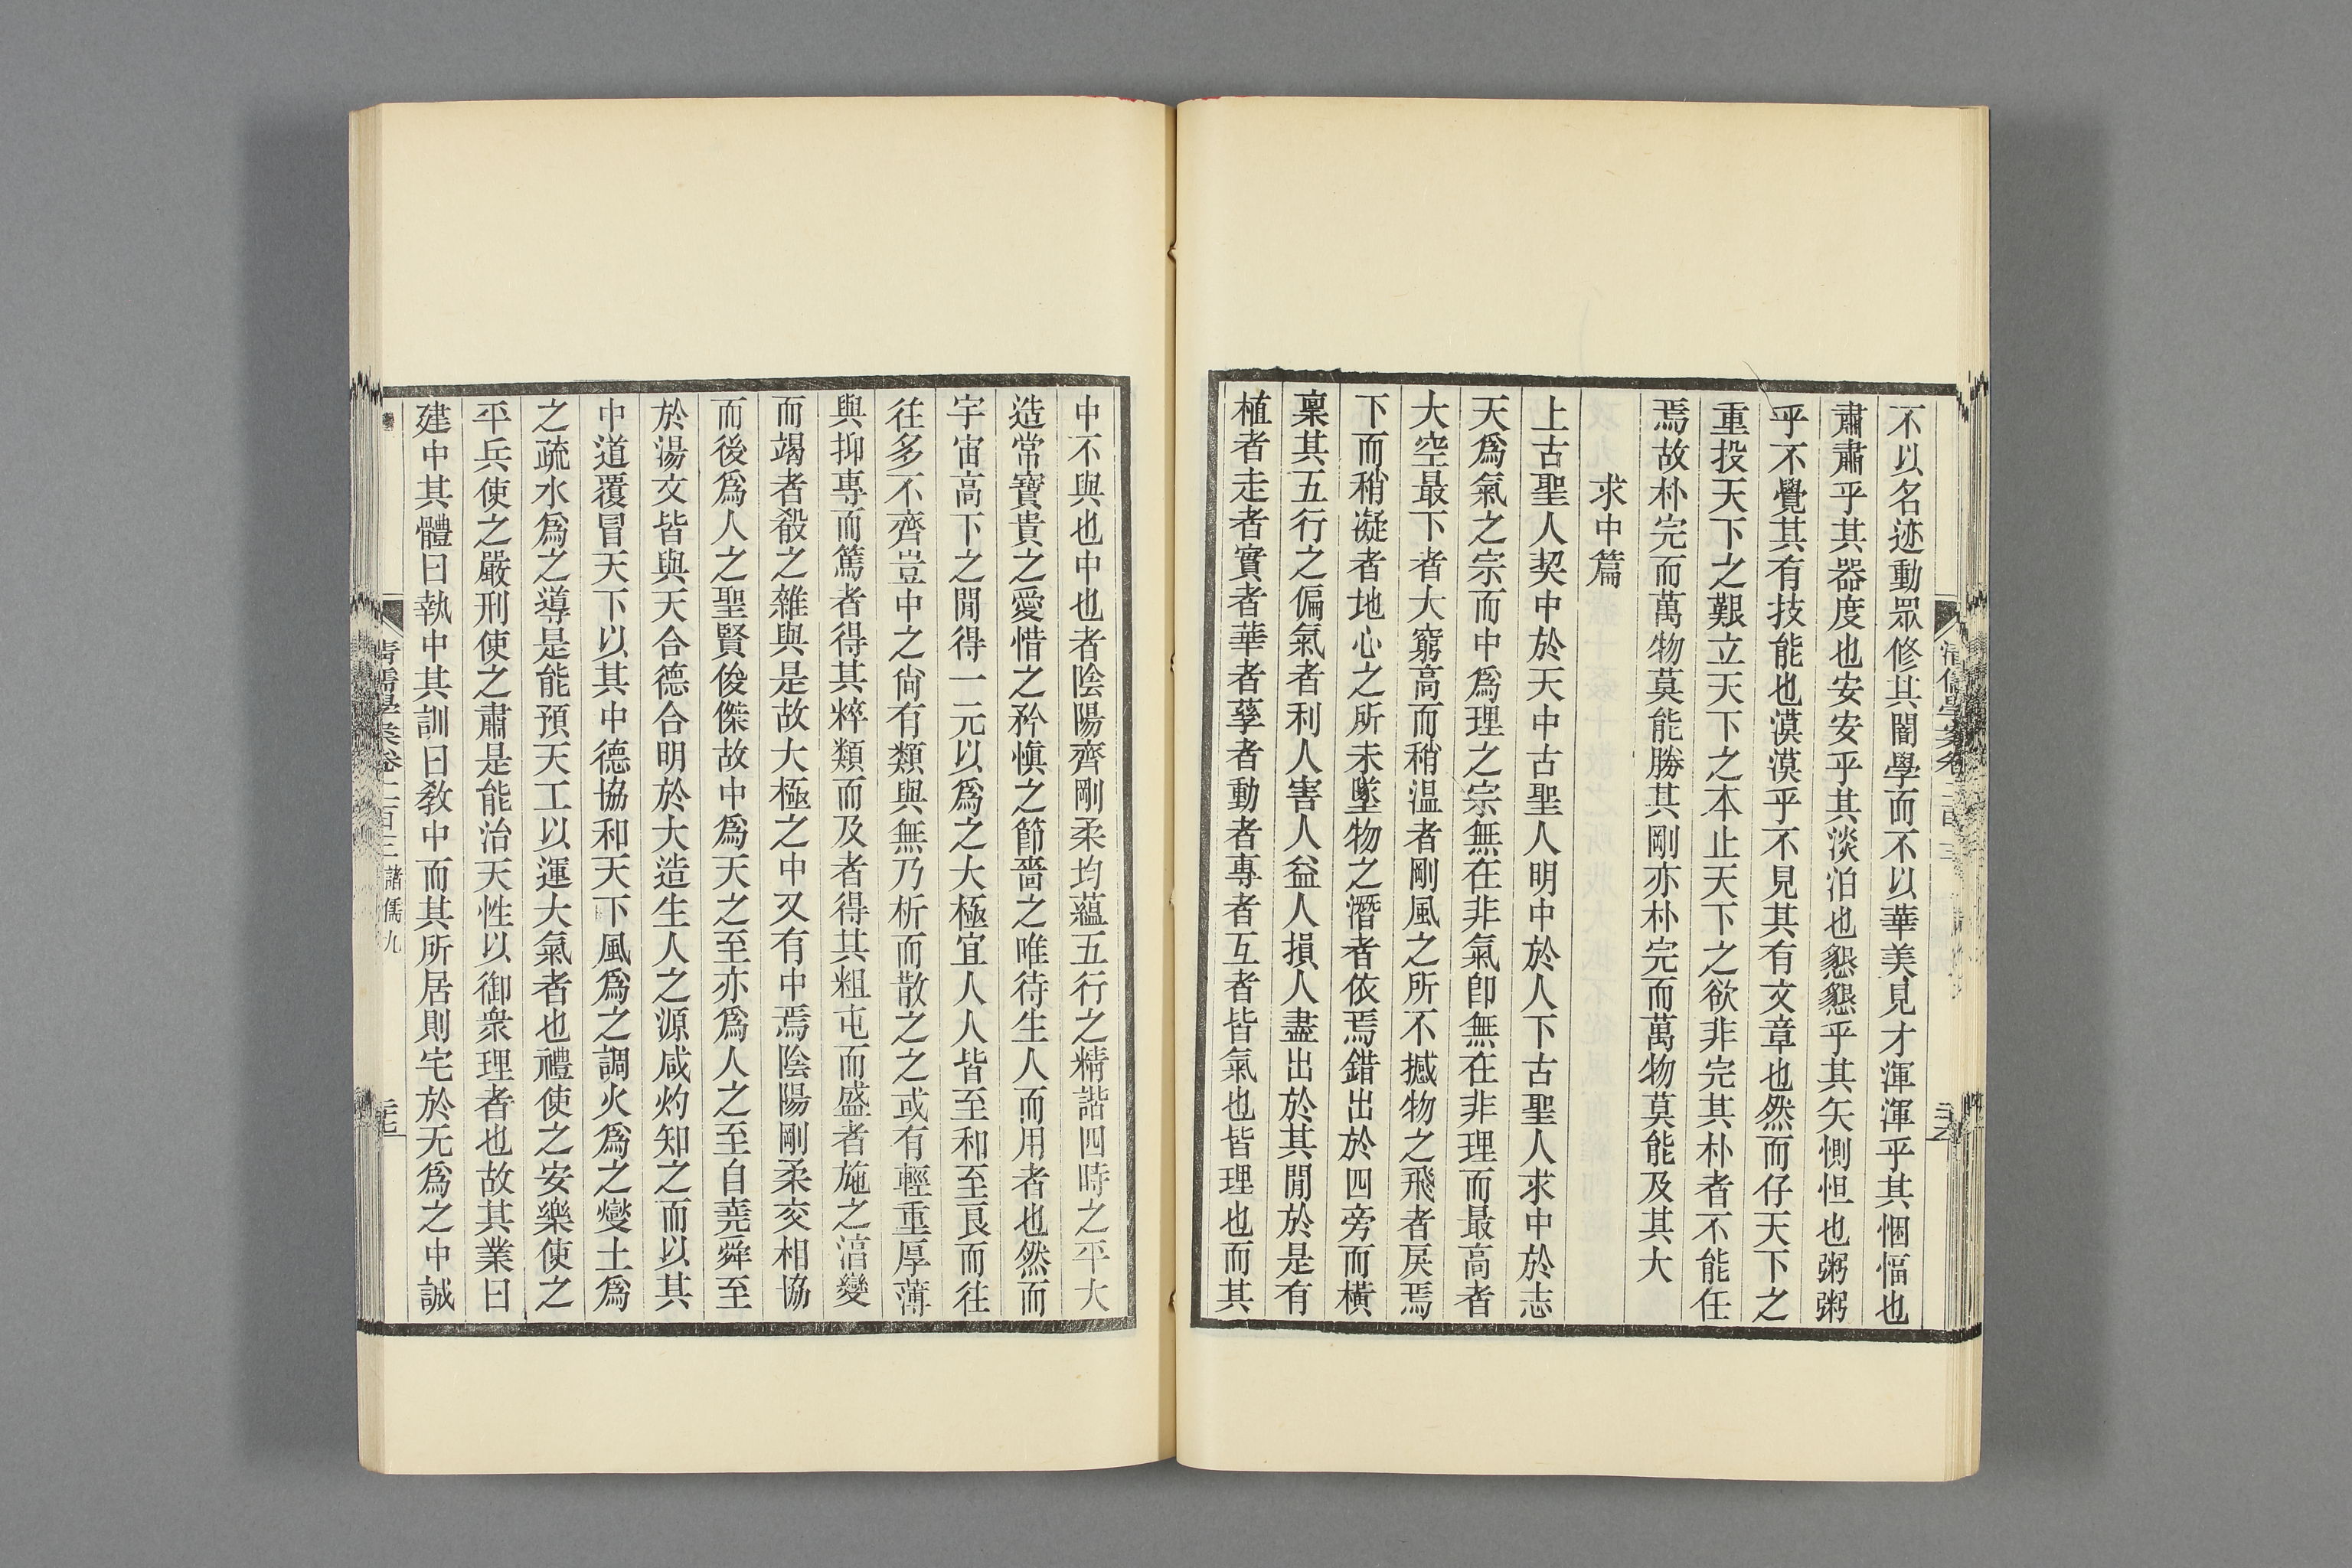 不以名迹動眾修其闇學而不以華美見才渾渾乎其悃愊也
肅肅乎其器度也安安乎其淡泊也懇懇乎其矢惻怛也粥粥
乎不覺其有技能也漠漠乎不見其有文章也然而仔天下之
重投天下之艱立天下之本止天下之欲非完其朴者不能任
焉故朴完而萬物莫能勝其剛亦朴完而萬物莫能及其大
求中篇
上古聖人契中於天中古聖人明中於人下古聖人求中於志
天爲氣之宗而中爲理之宗無在非氣卽無在非理而最高者
大空最下者大窮高而稍温者剛風之所不撼物之飛者戾焉
下而稍凝者地心之所未墜物之潛者依焉錯出於四旁而橫
稟其五行之偏氣者利人害人益人損人盡出於其閒於是有
植者走者實者華者孳者動者專者互者皆氣也皆理也而其
中不與也中也者陰陽齊剛柔均蘊五行之精諧四時之平大
造常寶貴之愛惜之矜愼之節嗇之唯待生人而用者也然而
宇宙高下之閒得一元以爲之大極宜人人皆至和至良而往
往多不齊豈中之尙有類與無乃析而散之之或有輕重厚薄
與抑專而篤者得其粹類而及者得其粗屯而盛者施之湻變
而竭者殺之雜與是故大極之中又有中焉陰陽剛柔交相協
而後爲人之聖賢俊傑故中爲天之至亦爲人之至自堯舜至
於湯文皆與天合德合明於大造生人之源咸灼知之而以其
中道覆冒天下以其中德協和天下風爲之調火爲之燮土爲
之疏水爲之導是能預天工以運大氣者也禮使之安樂使之
平兵使之嚴刑使之肅是能治天性以御衆理者也故其業曰
建中其體曰執中其訓曰敎中而其所居則宅於无爲之中誠
清儒學案卷二百三 諸儒九